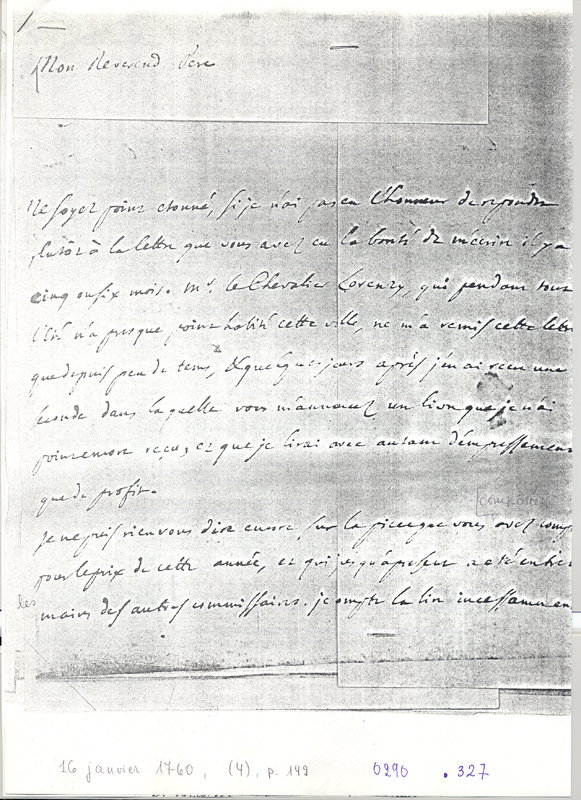 Mon Reverend Pere
Ne soyez point etonné, si je n'ai pas eu l'honneur de repondre
plutôt à la lettre que vous avez eu la bonté de m'ecrire il y a
cinq ou six mois. Mr. le Chevalier Lorenzy, qui pendant tout
l'Eté n'a presque point habité cette ville, ne m'a remis cette lettre
que depuis peu de tems, & quelques jours après j'en ai reçu une
seconde dans laquelle vous m'annoncez un livre que je n'ai
point encore reçu, et que je lirai avec autant d'empressement
que de profit.
[compositi
Je ne puis rien vous dire encore sur la piece que vous avez comp
pour le prix de cette année, et qui jusqu'à present a eté entre
les
mains des autres commissaires. je compte la lire incessamment
16 janvier 1760, (4), p. 149 0290 .327